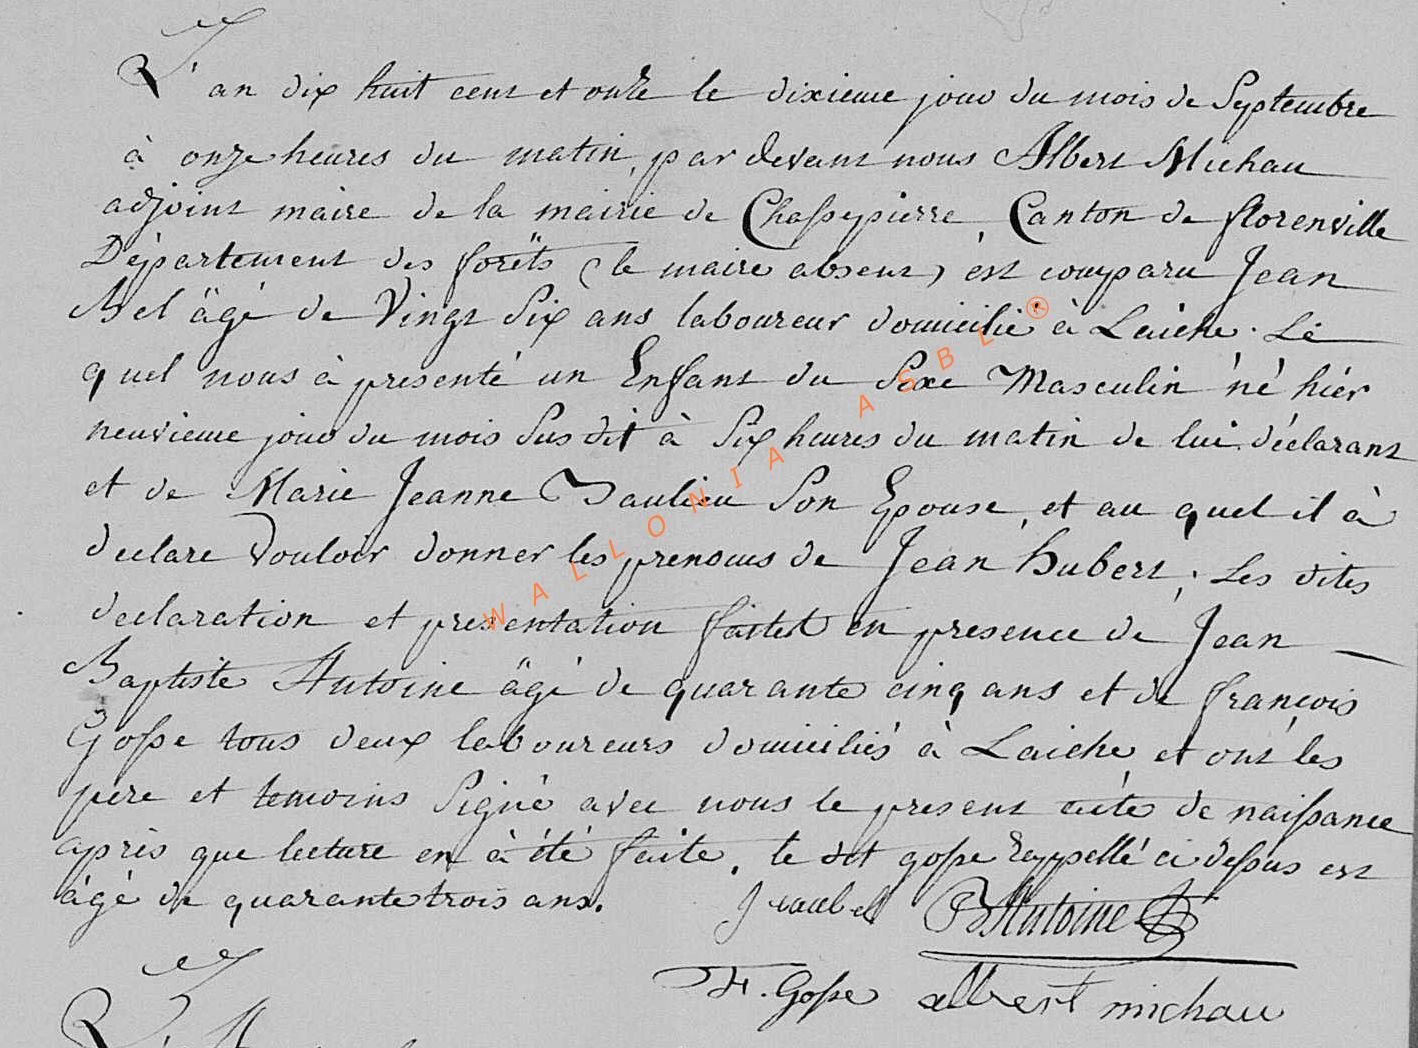 L'an dix huit cent et onze le dixieme jour du mois de Septembre
à onze heures du matin, par devant nous Albert Michau
adjoint maire de la mairie de Chassepierre, Canton de florenville
Département des forêts (le maire absent) est comparu Jean
Bel âgé de Vingt Six ans laboureur domicilié à Laiche. Le
quel nous à presenté un Enfant du Sexe Masculin né hiér
neuvieme jour du mois Susdit à Six heures du matin de lui déclarant
et de Marie Jeanne Saulieu Son Epouse, et au quel il à
declare Vouloir donner les prenoms de Jean hubert; Les dites
declaration et presentation faites en presence de Jean
Baptiste Antoine âgé de quarante cinq ans et de françois
Gosse tous deux laboureurs domiciliés à Laiche et ont les
pere et temoins Signé avec nous le present acte de naissance
après que lecture en à été faite. le dit gosse rappellé ci dessus est
âgé de quarante trois ans. Jean bel B Antoine
F. Gosse albert michau
WALLONIA ASBL ®